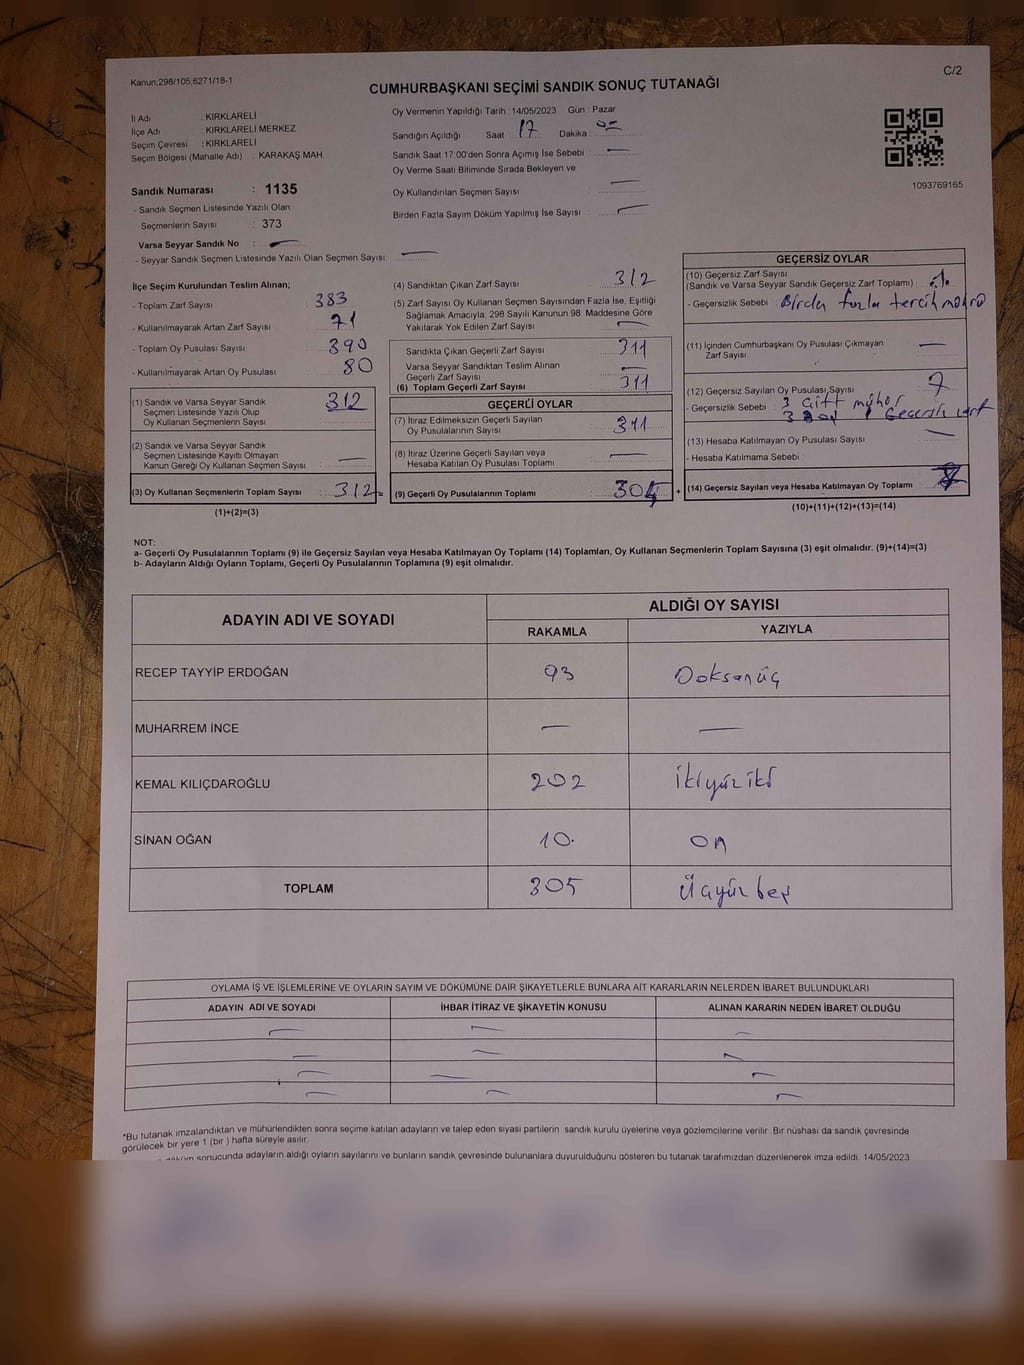 Kanun:298/105;6271/18-1
C/2
CUMHURBAŞKANI SEÇİMİ SANDIK SONUÇ TUTANAĞI
İl Adı : KIRKLARELİ
İlçe Adı : KIRKLARELİ MERKEZ
Seçim Çevresi : KIRKLARELİ
Seçim Bölgesi (Mahalle Adı) : KARAKAŞ MAH
Sandık Numarası : 1135
- Sandık Seçmen Listesinde Yazılı Olan
Seçmenlerin Sayısı : 373
Varsa Seyyar Sandık No : —
- Seyyar Sandık Seçmen Listesinde Yazılı Olan Seçmen Sayısı: —
Oy Vermenin Yapıldığı Tarih : 14/05/2023 Gün : Pazar
Sandığın Açıldığı Saat : 17 Dakika :
Sandık Saat 17:00'den Sonra Açımış İse Sebebi : —
Oy Verme Saati Bitiminde Sırada Bekleyen ve
Oy Kullandırılan Seçmen Sayısı : —
Birden Fazla Sayım Döküm Yapılmış İse Sayısı : —
1093769165
İlçe Seçim Kurulundan Teslim Alınan;
- Toplam Zarf Sayısı : 383
- Kullanılmayarak Artan Zarf Sayısı : 71
- Toplam Oy Pusulası Sayısı : 390
- Kullanılmayarak Artan Oy Pusulası : 80
(1) Sandık ve Varsa Seyyar Sandık
Seçmen Listesinde Yazılı Olup
Oy Kullanan Seçmenlerin Sayısı : 312
(2) Sandık ve Varsa Seyyar Sandık
Seçmen Listesinde Kayıtlı Olmayan
Kanun Gereği Oy Kullanan Seçmen Sayısı : —
(3) Oy Kullanan Seçmenlerin Toplam Sayısı : 312 =
(1)+(2)=(3)
(4) Sandıktan Çıkan Zarf Sayısı : 312
(5) Zarf Sayısı Oy Kullanan Seçmen Sayısından Fazla İse, Eşitliği
Sağlamak Amacıyla; 298 Sayılı Kanunun 98. Maddesine Göre
Yakılarak Yok Edilen Zarf Sayısı : —
Sandıkta Çıkan Geçerli Zarf Sayısı : 311
Varsa Seyyar Sandıktan Teslim Alınan
Geçerli Zarf Sayısı : —
(6) Toplam Geçerli Zarf Sayısı : 311
GEÇERLİ OYLAR
(7) İtiraz Edilmeksizin Geçerli Sayılan
Oy Pusulalarının Sayısı : 311
(8) İtiraz Üzerine Geçerli Sayılan veya
Hesaba Katılan Oy Pusulası Toplamı : —
(9) Geçerli Oy Pusulalarının Toplamı : 305 +
GEÇERSİZ OYLAR
(10) Geçersiz Zarf Sayısı
(Sandık ve Varsa Seyyar Sandık Geçersiz Zarf Toplamı) :
- Geçersizlik Sebebi : Birden fazla tercih mührü
(11) İçinden Cumhurbaşkanı Oy Pusulası Çıkmayan
Zarf Sayısı : —
(12) Geçersiz Sayılan Oy Pusulası Sayısı : 7
- Geçersizlik Sebebi : 3 çift mühür
3 boş 1 Geçersiz
(13) Hesaba Katılmayan Oy Pusulası Sayısı : —
- Hesaba Katılmama Sebebi :
(14) Geçersiz Sayılan veya Hesaba Katılmayan Oy Toplamı :
(10)+(11)+(12)+(13)=(14)
NOT:
a- Geçerli Oy Pusulalarının Toplamı (9) ile Geçersiz Sayılan veya Hesaba Katılmayan Oy Toplamı (14) Toplamları, Oy Kullanan Seçmenlerin Toplam Sayısına (3) eşit olmalıdır. (9)+(14)=(3)
b- Adayların Aldığı Oyların Toplamı, Geçerli Oy Pusulalarının Toplamına (9) eşit olmalıdır.
ADAYIN ADI VE SOYADI
ALDIĞI OY SAYISI
RAKAMLA YAZIYLA
RECEP TAYYİP ERDOĞAN 93 Doksanüç
MUHARREM İNCE — —
KEMAL KILIÇDAROĞLU 202 İkiyüziki
SİNAN OĞAN 10. on
TOPLAM 305 Üçyüz beş
OYLAMA İŞ VE İŞLEMLERİNE VE OYLARIN SAYIM VE DÖKÜMÜNE DAİR ŞİKAYETLERLE BUNLARA AİT KARARLARIN NELERDEN İBARET BULUNDUKLARI
ADAYIN ADI VE SOYADI İHBAR İTİRAZ VE ŞİKAYETİN KONUSU ALINAN KARARIN NEDEN İBARET OLDUĞU
— — —
— — —
— — —
— — —
*Bu tutanak imzalandıktan ve mühürlendikten sonra seçime katılan adayların ve talep eden siyasi partilerin sandık kurulu üyelerine veya gözlemcilerine verilir. Bir nüshası da sandık çevresinde
görülecek bir yere 1 (bir ) hafta süreyle asılır.
döküm sonucunda adayların aldığı oyların sayılarını ve bunların sandık çevresinde bulunanlara duyurulduğunu gösteren bu tutanak tarafımızdan düzenlenerek imza edildi. 14/05/2023